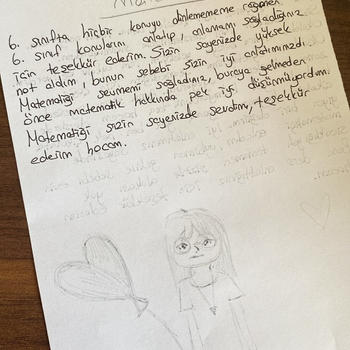 6. sınıfta hiçbir konuyu dinlemememe rağmen
6. sınıf konularını anlatıp, anlamamı sağladığınız
için teşekkür ederim. Sizin sayenizde yüksek
not aldım, bunun sebebi sizin iyi anlatımınızdı.
Matematiği sevmemi sağladınız, buraya gelmeden
önce matematik hakkında pek iyi düşünmüyordum.
Matematiği sizin sayenizde sevdim, teşekkür
ederim hocam.